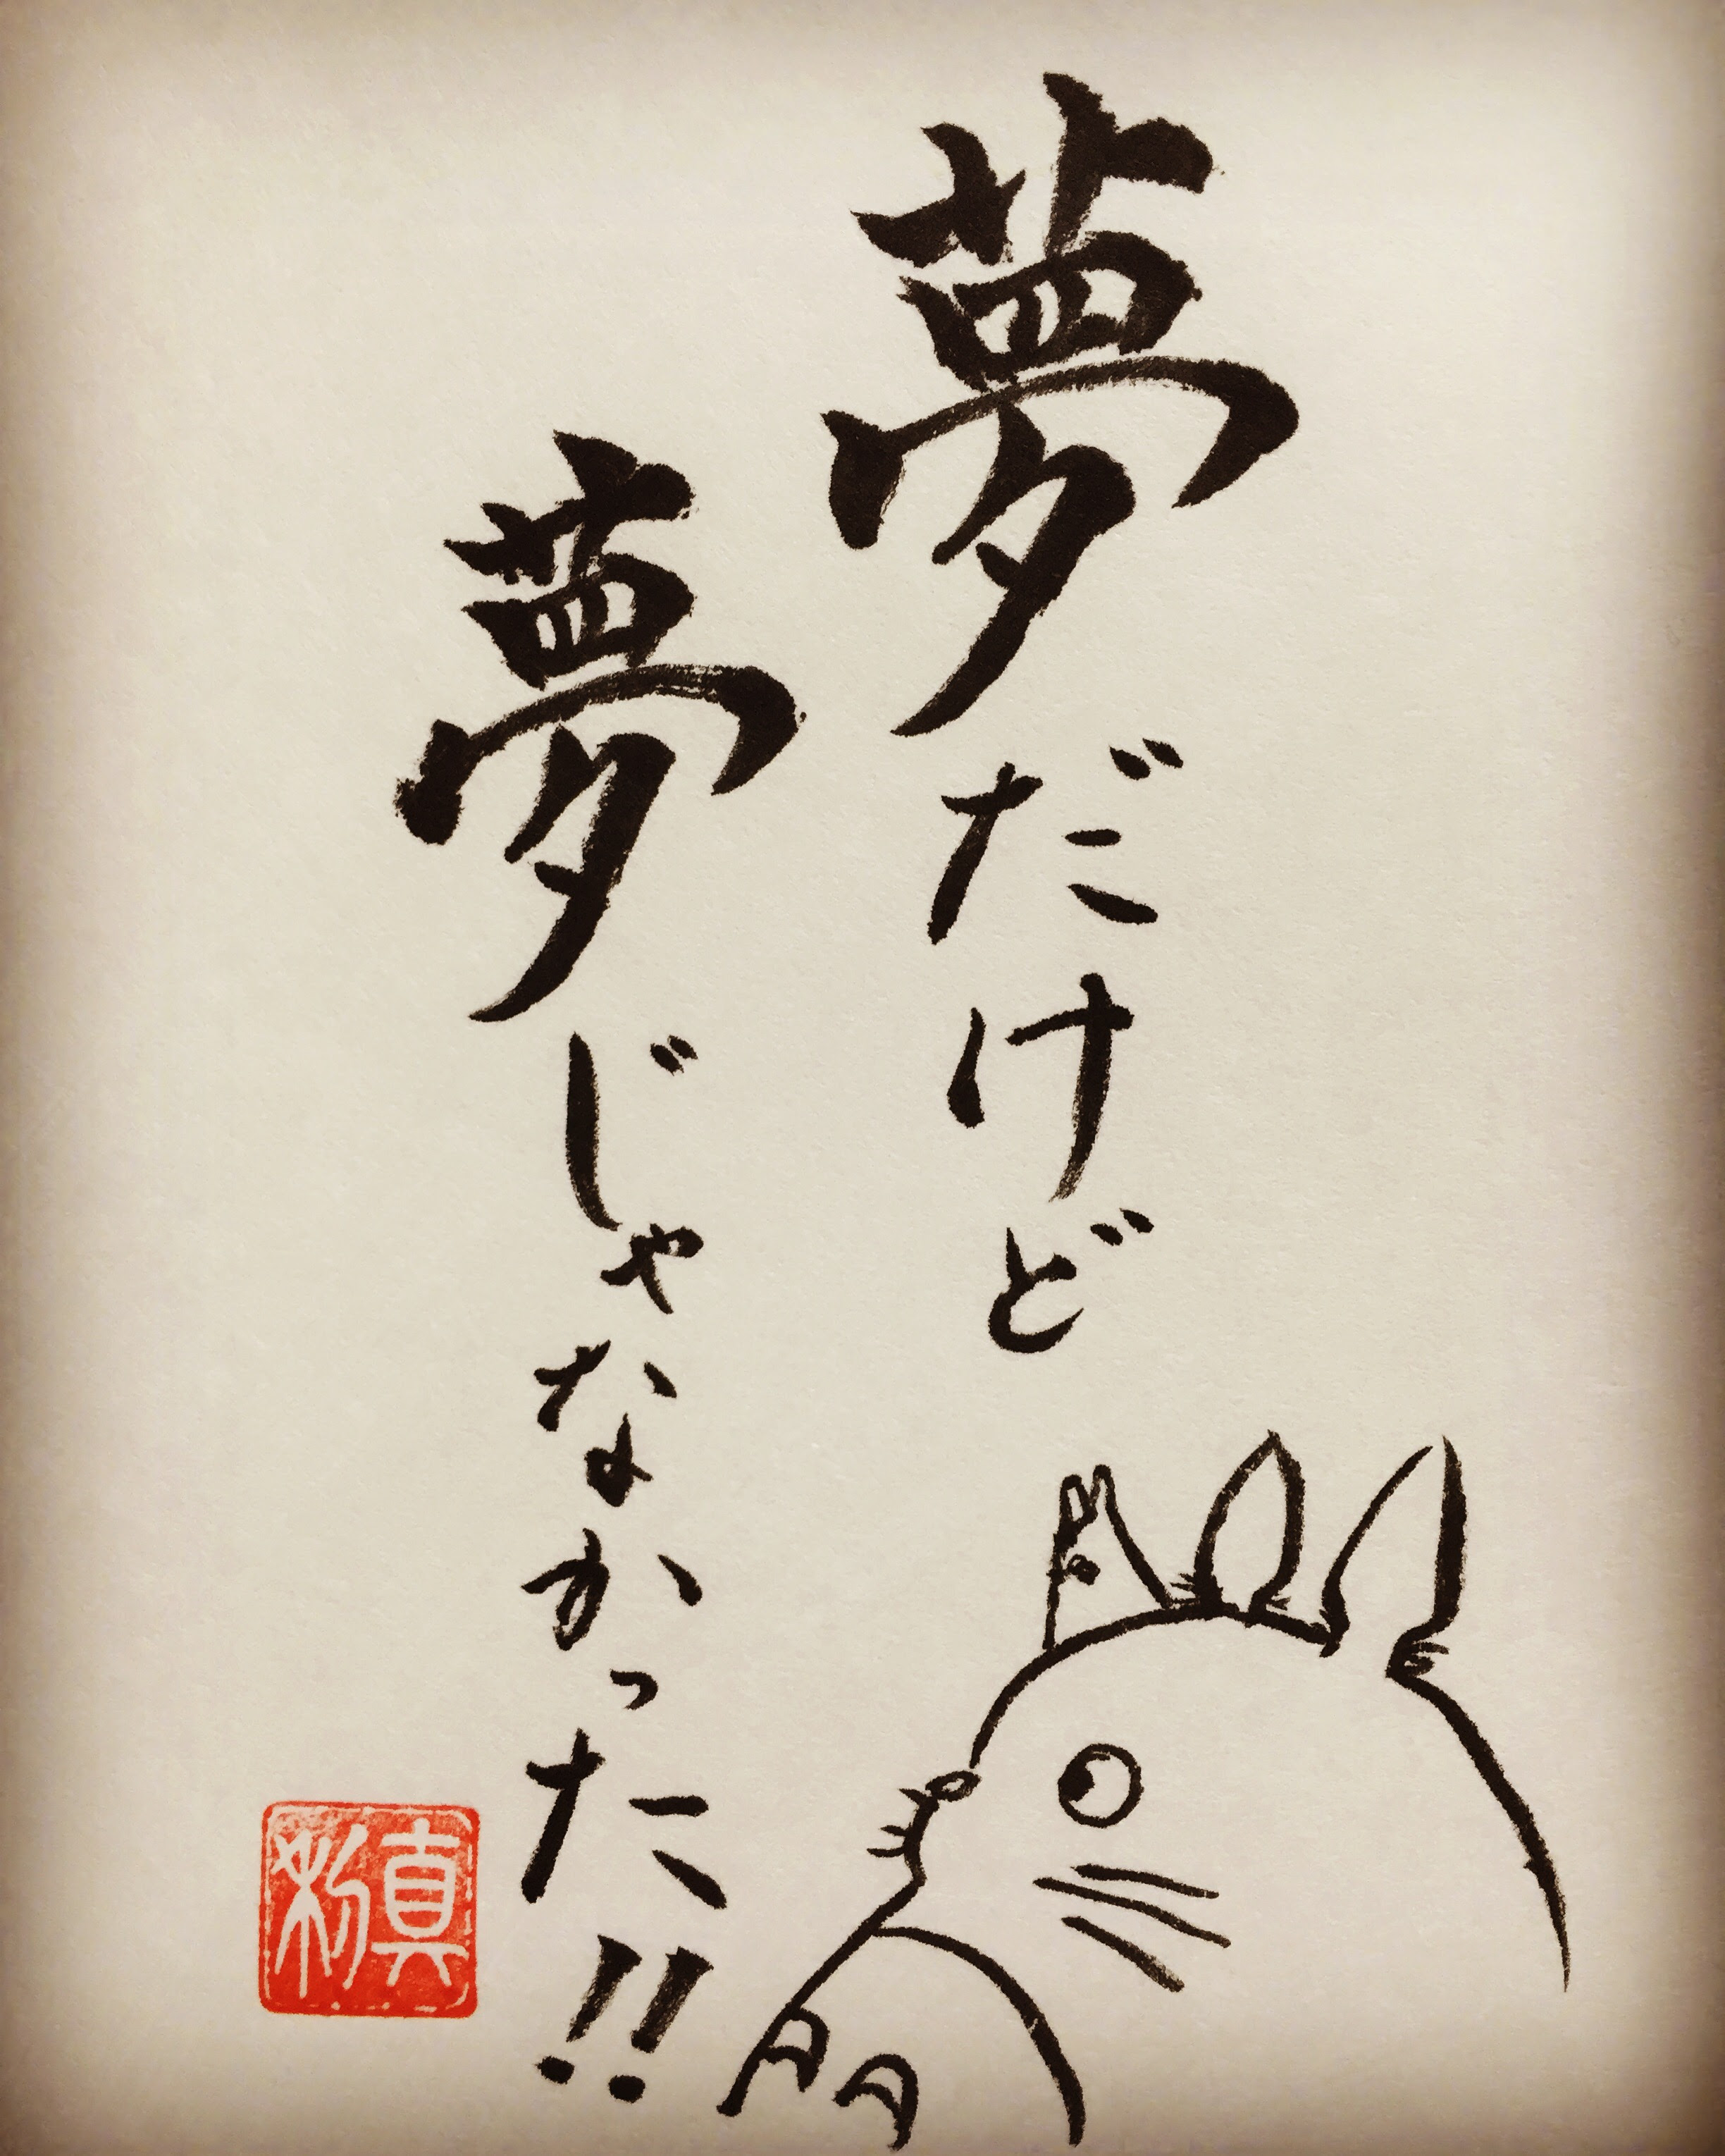 夢だけど
夢じゃなかった!!